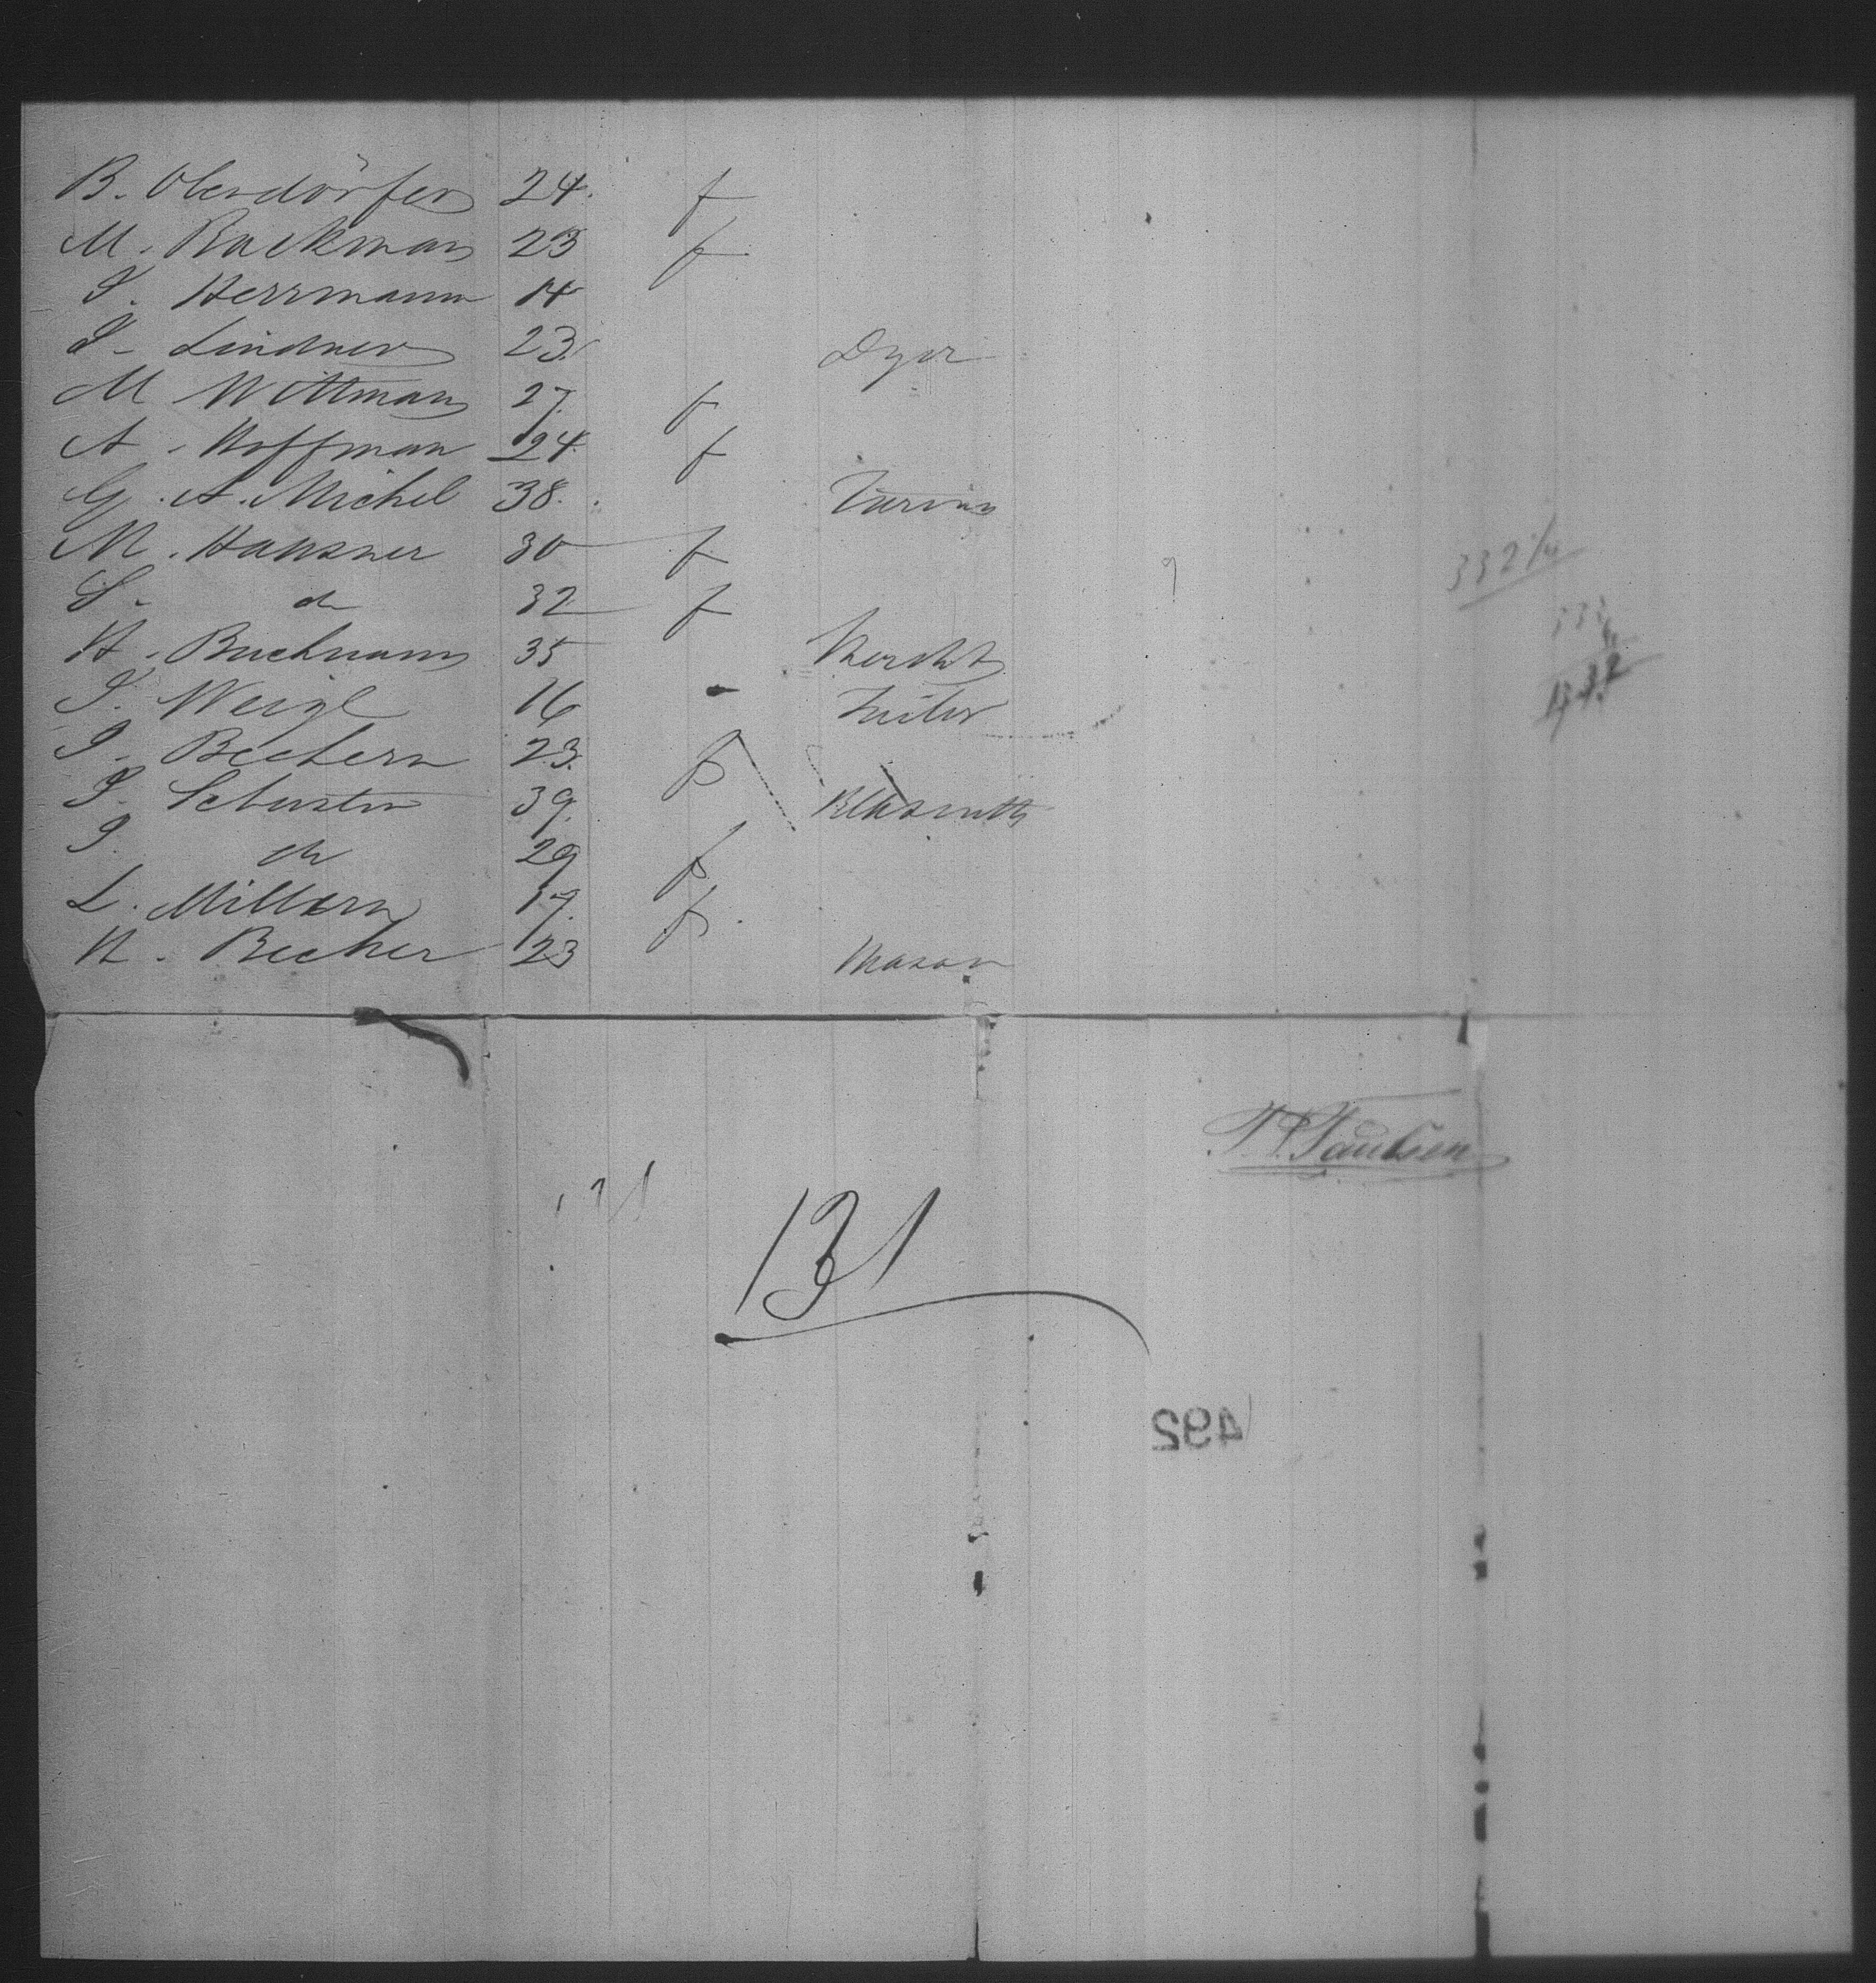 B. Oberdörfer 24. f
M. Rackman 23 f
S. Herrmann 14
S. Lindner 23. Dyer
M Wittman 27. f
A. Hoffman 24. f
G. A. Michel 38.
M. Haussner 30 f
S. do 32 f
H. Buchmann 35 Mercht
J. Weigl 16
J. Bechern 23. f
J. Schuster 39. Blksmith
J. do 29 f
L. Millern 17. f
H. Becher 23 Mason
332
Paulsen
131
131
492